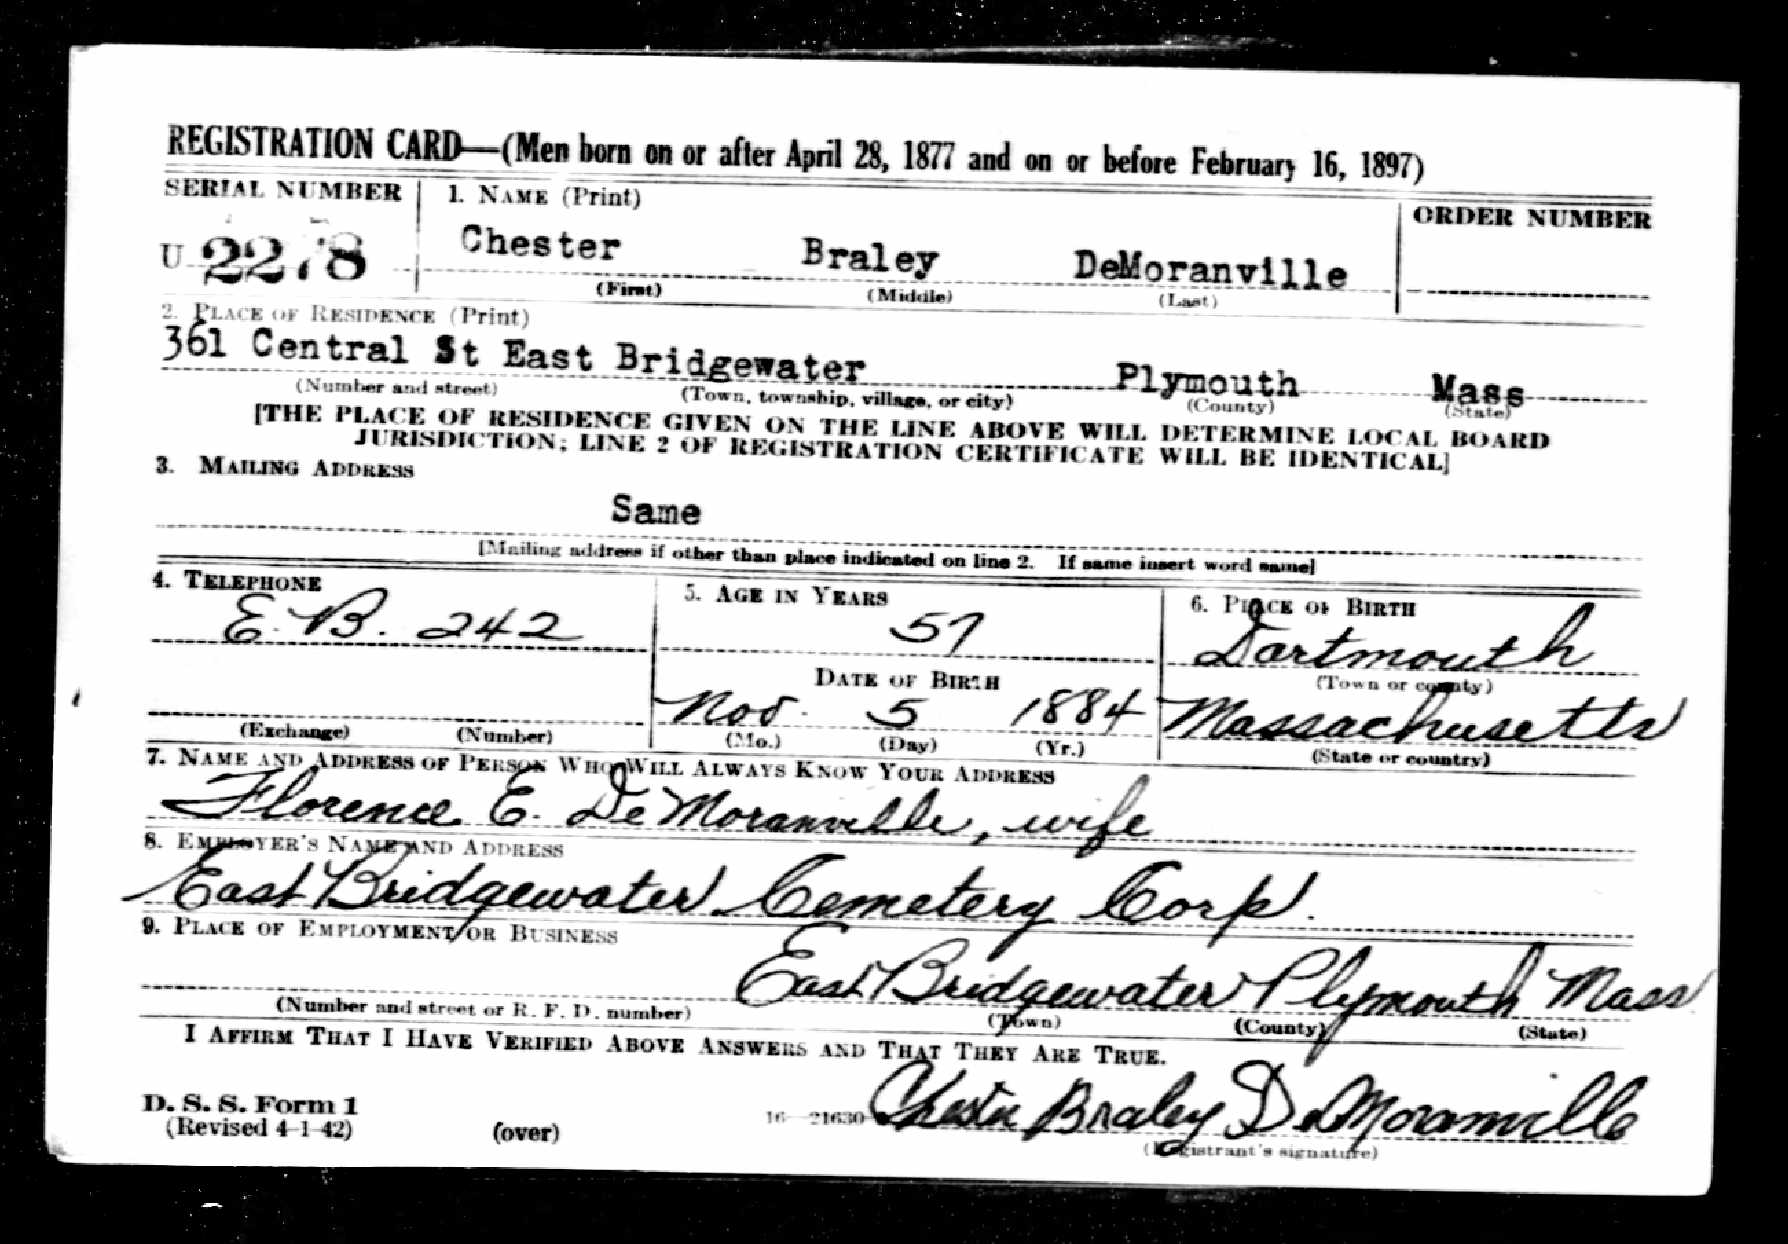 REGISTRATION CARD—(Men born on or after April 28, 1877 and on or before February 16, 1897)
SERIAL NUMBER 1. NAME (Print) ORDER NUMBER
U 2278 Chester Braley DeMoranville
(First) (Middle) (Last)
2. PLACE OF RESIDENCE (Print)
361 Central St East Bridgewater Plymouth Mass
(Number and street) (Town, township, village, or city) (County) (State)
[THE PLACE OF RESIDENCE GIVEN ON THE LINE ABOVE WILL DETERMINE LOCAL BOARD
JURISDICTION; LINE 2 OF REGISTRATION CERTIFICATE WILL BE IDENTICAL]
3. MAILING ADDRESS
Same
[Mailing address if other than place indicated on line 2. If same insert word same]
4. TELEPHONE 5. AGE IN YEARS 6. PLACE OF BIRTH
E. B. 242 57 Dartmouth
DATE OF BIRTH (Town or county)
Nov. 5 1884 Massachusetts
(Exchange) (Number) (Mo.) (Day) (Yr.) (State or country)
7. NAME AND ADDRESS OF PERSON WHO WILL ALWAYS KNOW YOUR ADDRESS
Florence E. DeMoranville, wife
8. EMPLOYER'S NAME AND ADDRESS
East Bridgewater Cemetery Corp.
9. PLACE OF EMPLOYMENT OR BUSINESS
East Bridgewater Plymouth Mass
(Number and street or R. F. D. number) (Town) (County) (State)
I AFFIRM THAT I HAVE VERIFIED ABOVE ANSWERS AND THAT THEY ARE TRUE.
D. S. S. Form 1
(Revised 4-1-42) (over) 16—21630 Chester Braley DeMoranville
(Registrant's signature)